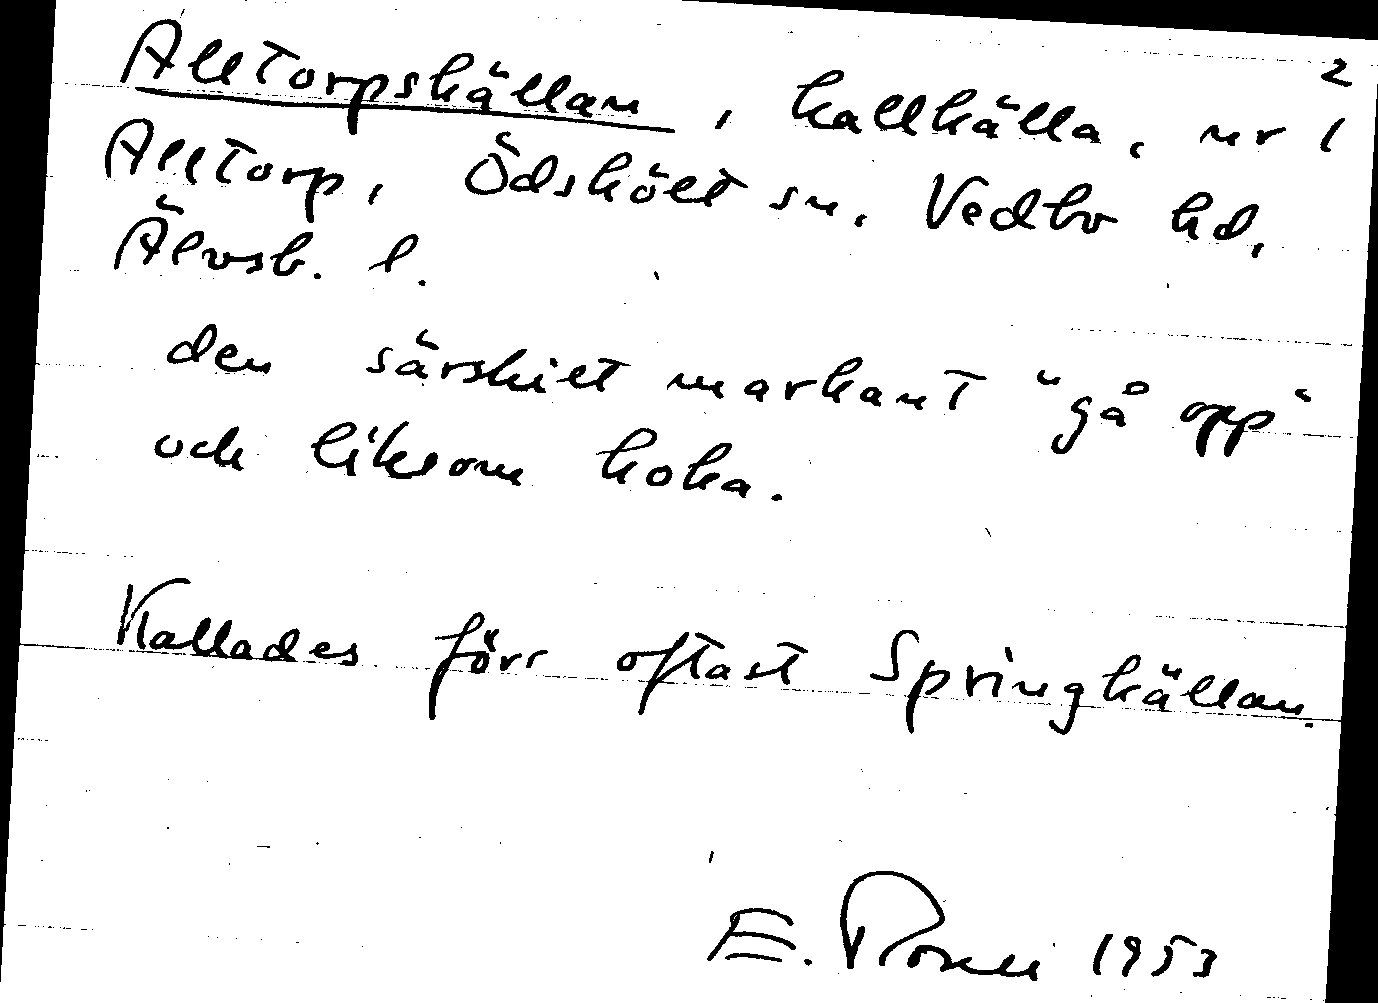 2
Alltorpskällan, kallkälla, nr 1
Alltorp, Ödskölt sn. Vedbo hd,
Älvsb. l.
den särskilt markant "gå opp"
och liksom koka.
Kallades förr oftast Springkällan.
E. 1953